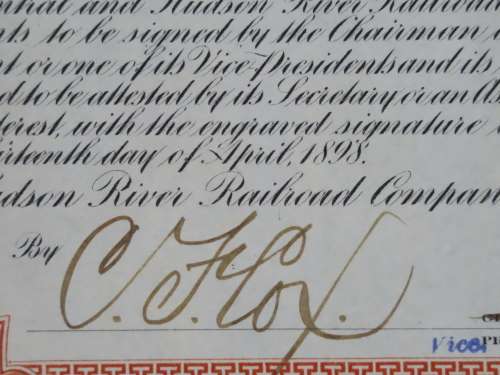 ntral and Hudson River Railroad
nts to be signed by the Chairman
nt or one of its Vice-Presidents and its
d to be attested by its Secretary or an As
terest, with the engraved signature
irteenth day of April, 1898.
udson River Railroad Compan
By C. F. Cox.
Vice